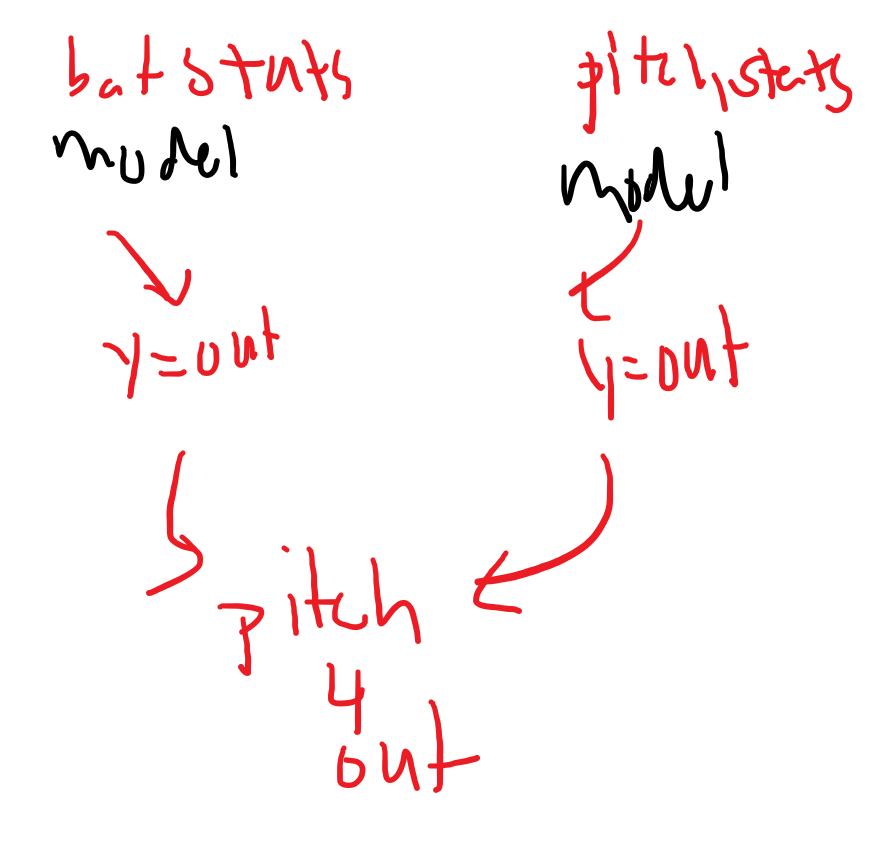 bat stats
model
pitch stats
model
y=out
y=out
pitch
4
out